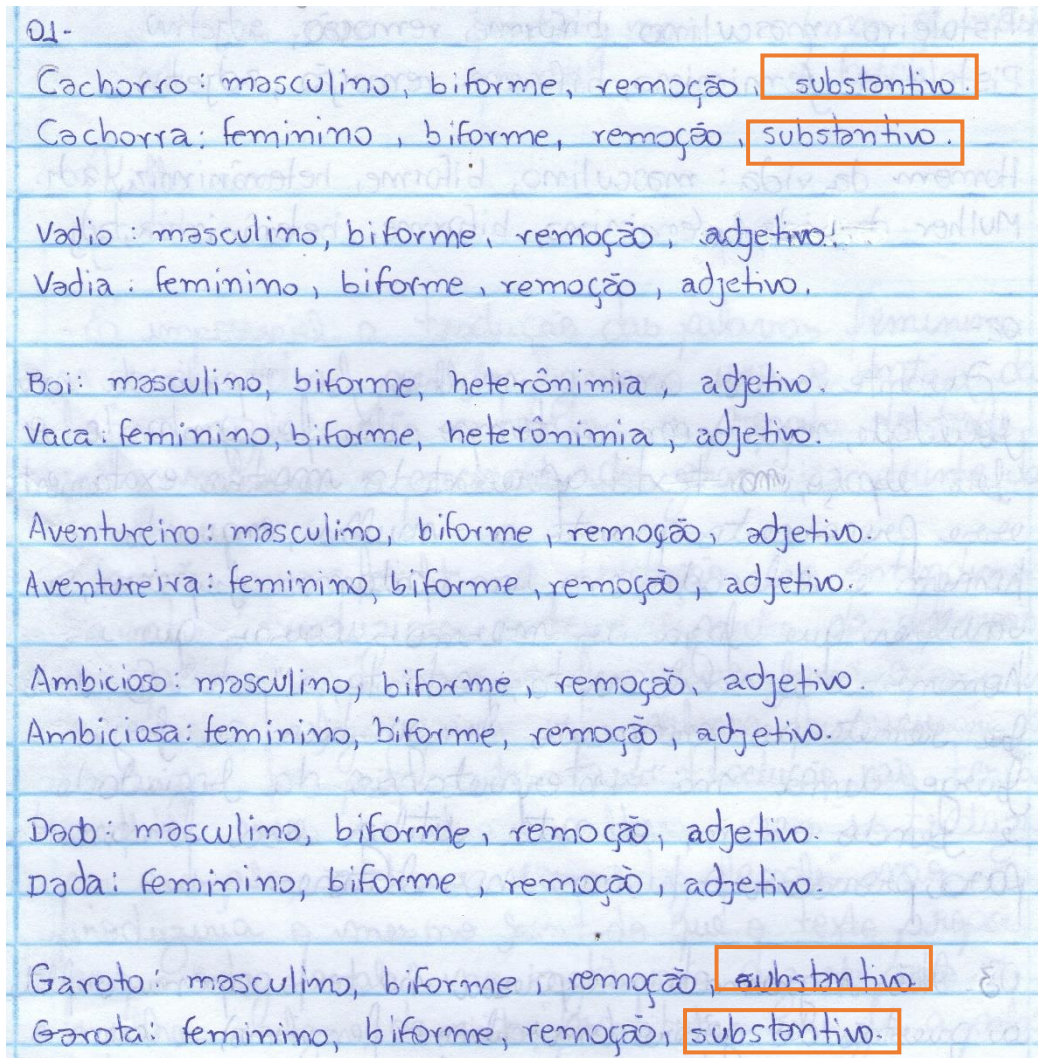 01-
Cachorro: masculino, biforme, remoção, substantivo.
Cachorra: feminino, biforme, remoção, substantivo.
Vadio: masculino, biforme, remoção, adjetivo.
Vadia: feminino, biforme, remoção, adjetivo.
Boi: masculino, biforme, heterônimia, adjetivo.
Vaca: feminino, biforme, heterônimia, adjetivo.
Aventureiro: masculino, biforme, remoção, adjetivo.
Aventureira: feminino, biforme, remoção, adjetivo.
Ambicioso: masculino, biforme, remoção, adjetivo.
Ambiciosa: feminino, biforme, remoção, adjetivo.
Dado: masculino, biforme, remoção, adjetivo.
Dada: feminino, biforme, remoção, adjetivo.
Garoto: masculino, biforme, remoção, substantivo
Garota: feminino, biforme, remoção, substantivo.